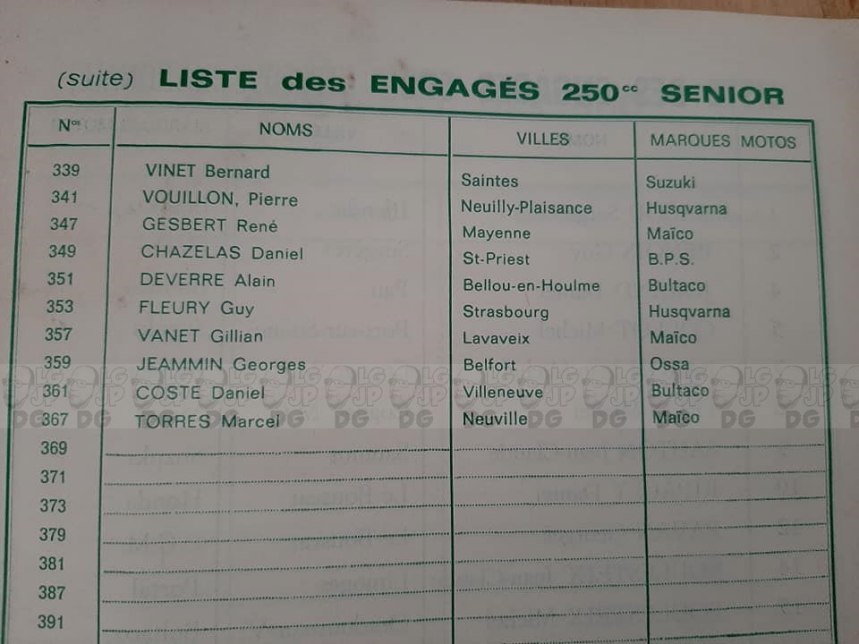 (suite) LISTE des ENGAGÉS 250cc SENIOR
Nos NOMS VILLES MARQUES MOTOS
339 VINET Bernard Saintes Suzuki
341 VOUILLON, Pierre Neuilly-Plaisance Husqvarna
347 GESBERT René Mayenne Maïco
349 CHAZELAS Daniel St-Priest B.P.S.
351 DEVERRE Alain Bellou-en-Houlme Bultaco
353 FLEURY Guy Strasbourg Husqvarna
357 VANET Gillian Lavaveix Maïco
359 JEAMMIN Georges Belfort Ossa
361 COSTE Daniel Villeneuve Bultaco
367 TORRES Marcel Neuville Maïco
369
371
373
379
381
387
391
LG JP DG